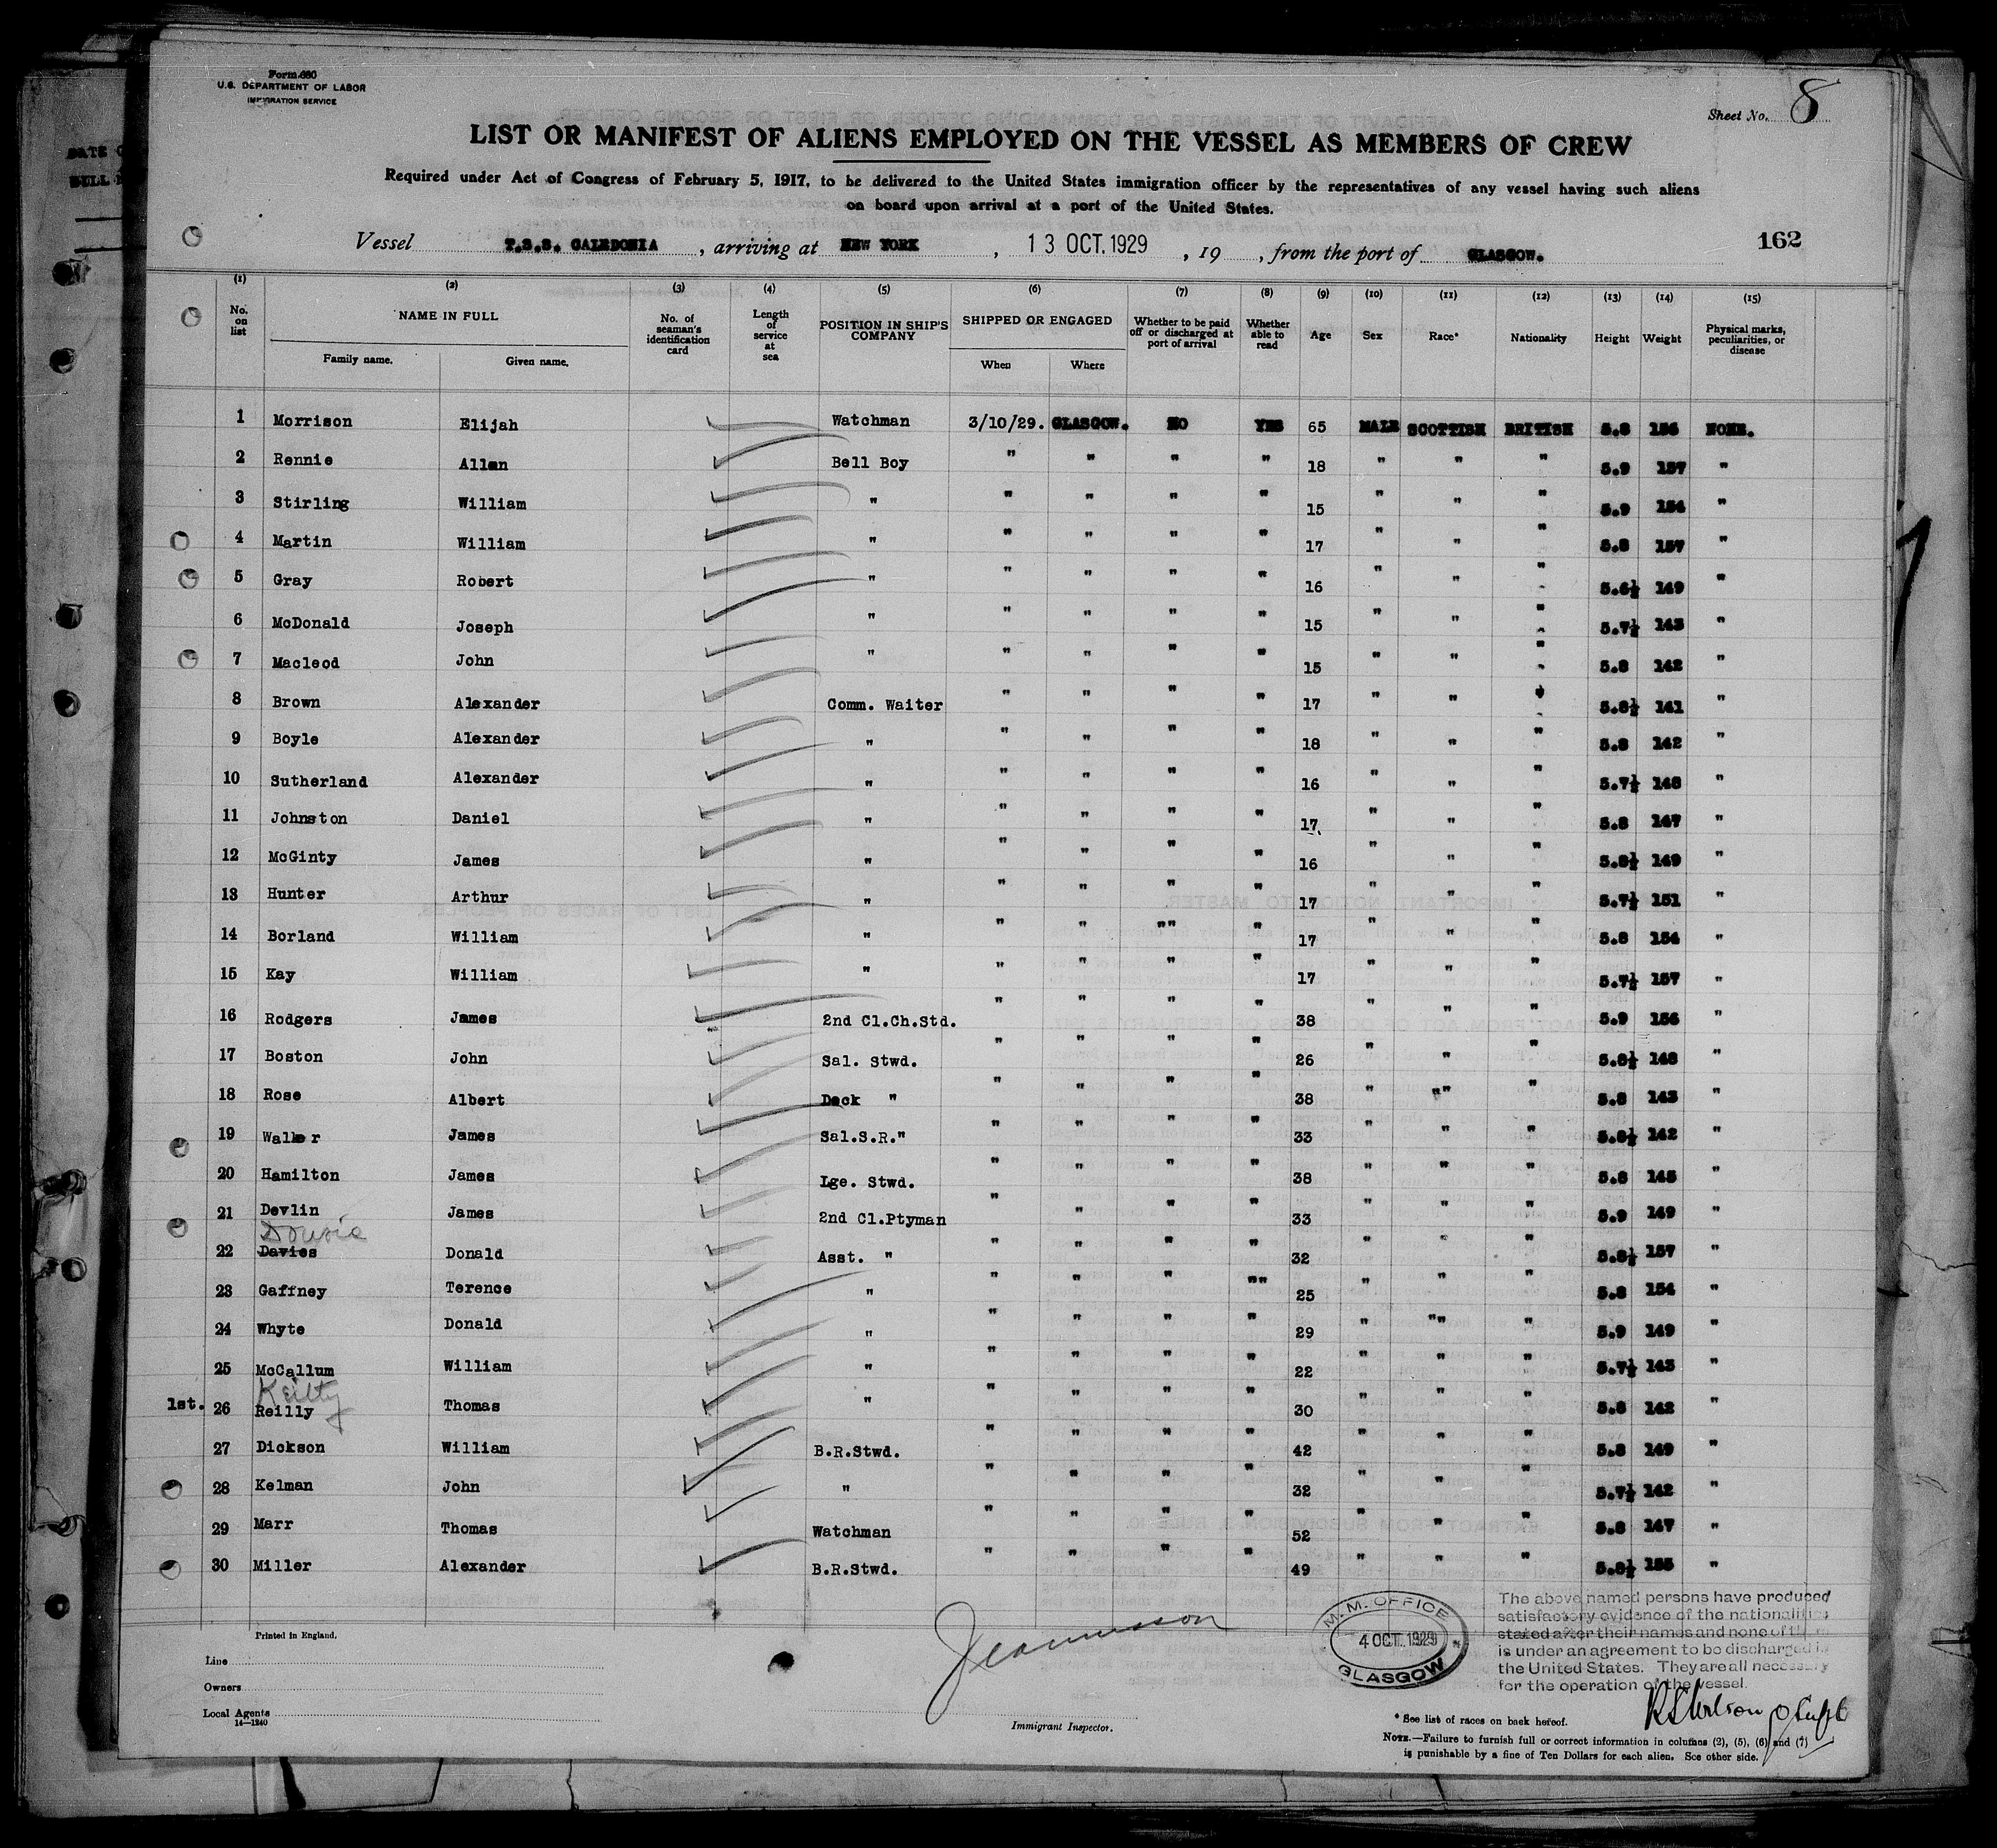 Form 680
U.S. DEPARTMENT OF LABOR
IMMIGRATION SERVICE
Sheet No. 8
LIST OR MANIFEST OF ALIENS EMPLOYED ON THE VESSEL AS MEMBERS OF CREW
Required under Act of Congress of February 5, 1917, to be delivered to the United States immigration officer by the representatives of any vessel having such aliens
on board upon arrival at a port of the United States.
Vessel T.S.S. CALEDONIA, arriving at NEW YORK, 13 OCT. 1929, 19 , from the port of GLASGOW.
162
(1) (2) (3) (4) (5) (6) (7) (8) (9) (10) (11) (12) (13) (14) (15)
No. on list NAME IN FULL Family name. Given name. No. of seaman's identification card Length of service at sea POSITION IN SHIP'S COMPANY SHIPPED OR ENGAGED When Where Whether to be paid off or discharged at port of arrival Whether able to read Age Sex Race* Nationality Height Weight Physical marks, peculiarities, or disease
1 Morrison Elijah Watchman 3/10/29. GLASGOW. NO YES 65 MALE SCOTTISH BRITISH 5.8 156 NONE.
2 Rennie Allan Bell Boy " " " " 18 " " " 5.9 157 "
3 Stirling William " " " " " 15 " " " 5.9 154 "
4 Martin William " " " " " 17 " " " 5.8 157 "
5 Gray Robert " " " " " 16 " " " 5.6½ 149 "
6 McDonald Joseph " " " " " 15 " " " 5.7½ 143 "
7 Macleod John " " " " " 15 " " " 5.8 142 "
8 Brown Alexander Comm. Waiter " " " " 17 " " " 5.8½ 141 "
9 Boyle Alexander " " " " " 18 " " " 5.8 142 "
10 Sutherland Alexander " " " " " 16 " " " 5.7½ 148 "
11 Johnston Daniel " " " " " 17 " " " 5.8 147 "
12 McGinty James " " " " " 16 " " " 5.8½ 149 "
13 Hunter Arthur " " " " " 17 " " " 5.7½ 151 "
14 Borland William " " " "" " 17 " " " 5.8 154 "
15 Kay William " " " " " 17 " " " 5.7½ 157 "
16 Rodgers James 2nd Cl.Ch.Std. " " " " 38 " " " 5.9 156 "
17 Boston John Sal. Stwd. " " " " 26 " " " 5.8½ 148 "
18 Rose Albert Deck " " " " " 38 " "" " 5.8 143 "
19 Walker James Sal.S.R." " " " " 33 " " " 5.8½ 142 "
20 Hamilton James Lge. Stwd. " " " " 38 " " " 5.8 145 "
21 Devlin James 2nd Cl.Ptyman " " " " 33 " " " 5.9 149 "
22 Davies Donald Asst. " " " " " 32 " " " 5.8½ 157 "
23 Gaffney Terence " " " " "" 25 " " " 5.8 154 "
24 Whyte Donald " " " " " 29 " "" " 5.9 149 "
25 McCallum William " " " " " 22 " " " 5.7½ 143 "
Keilty
1st. 26 Reilly Thomas " " " " " 30 " " " 5.8 142 "
27 Dickson William B.R.Stwd. " " " " 42 " " " 5.8 149 "
28 Kelman John " " " " " 32 " " " 5.7½ 142 "
29 Marr Thomas Watchman " " " " 52 " " " 5.8 147 "
30 Miller Alexander B.R.Stwd. " " " " 49 " " " 5.8½ 155 "
Printed in England.
Line
Owners
Local Agents
14—1240
Immigrant Inspector.
M.M. OFFICE
4 OCT. 1929
GLASGOW
The above named persons have produced
satisfactory evidence of the nationalities
stated after their names and none of them
is under an agreement to be discharged in
the United States. They are all necessary
for the operation of the vessel.
* See list of races on back hereof.
NOTE.—Failure to furnish full or correct information in columns (2), (5), (6) and (7)
is punishable by a fine of Ten Dollars for each alien. See other side.